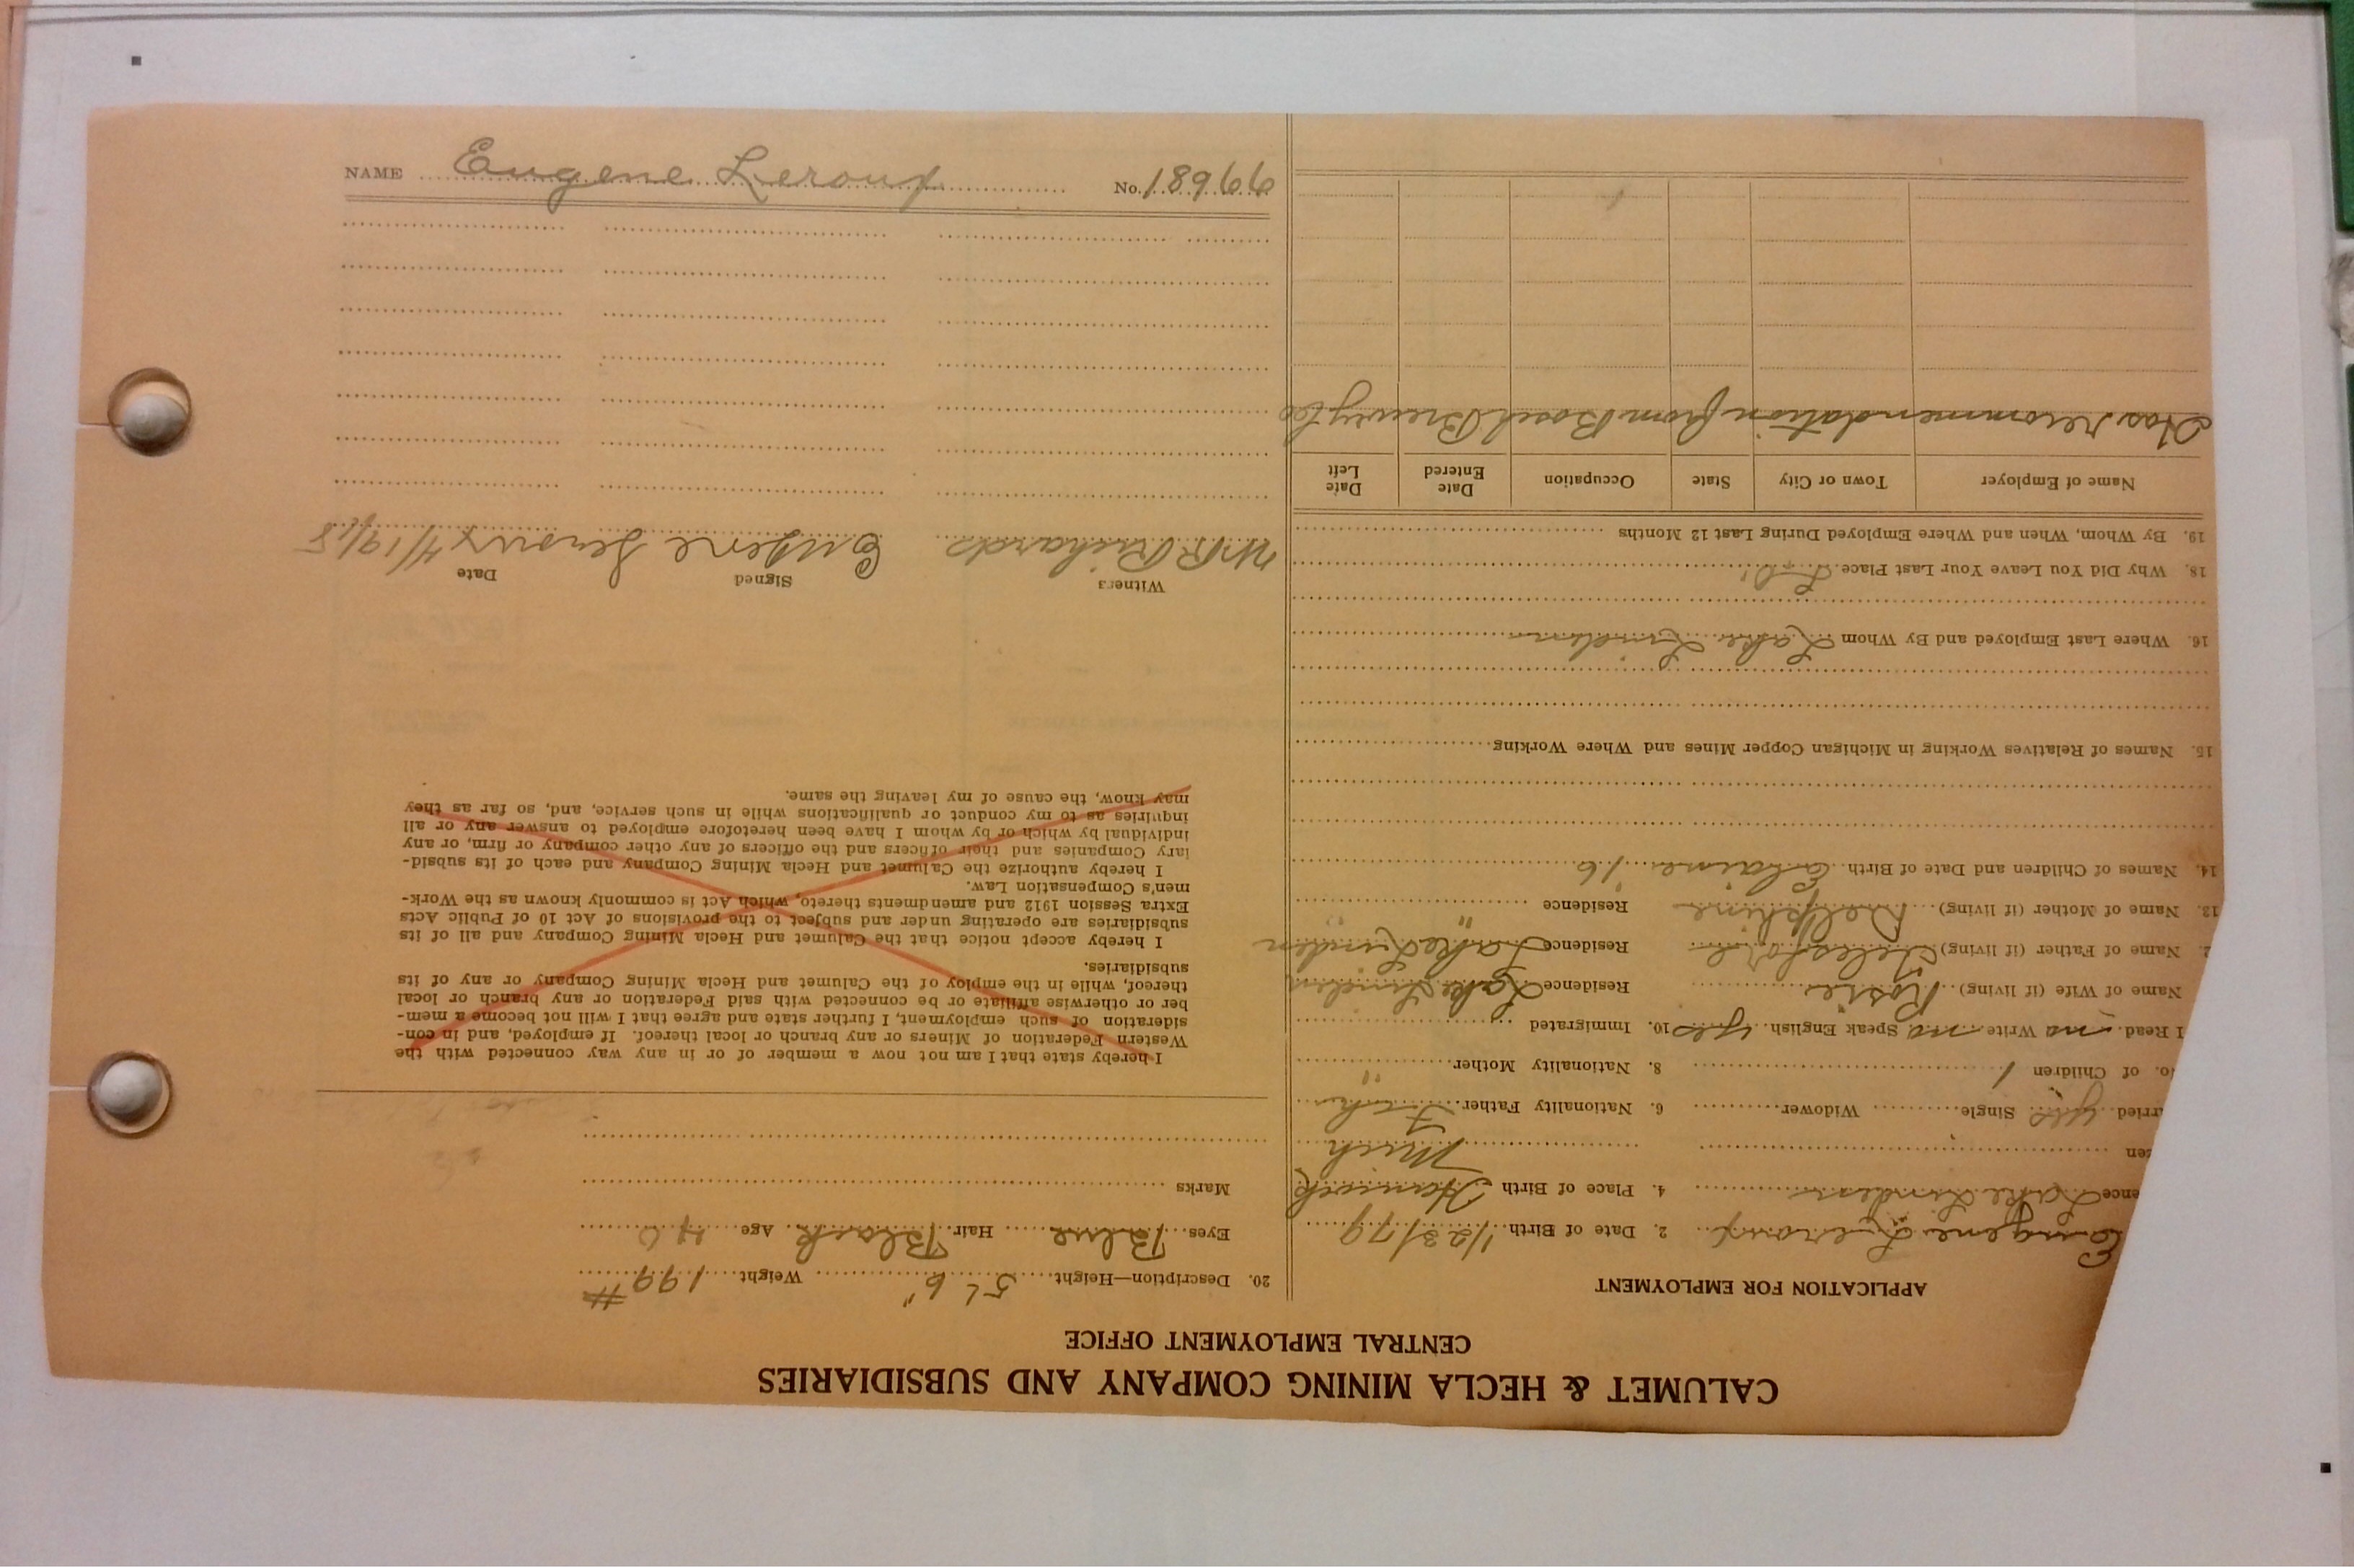 CALUMET & HECLA MINING COMPANY AND SUBSIDIARIES
CENTRAL EMPLOYMENT OFFICE
APPLICATION FOR EMPLOYMENT
Eugene Leroux 2. Date of Birth 1/23/79
ence Lake Linden 4. Place of Birth Hancock
zen Mich
rried yes Single Widower 6. Nationality Father Fch
o. of Children 1 8. Nationality Mother "
I Read no Write no Speak English yes 10. Immigrated
Name of Wife (if living) Rosie Residence Lake Linden
2. Name of Father (if living) Telesfore Residence Lake Linden
13. Name of Mother (if living) Delphine Residence " "
14. Names of Children and Date of Birth Elaine 16
15. Names of Relatives Working in Michigan Copper Mines and Where Working
16. Where Last Employed and By Whom Lake Linden
18. Why Did You Leave Your Last Place
19. By Whom, When and Where Employed During Last 12 Months
Name of Employer Town or City State Occupation Date Entered Date Left
Has recommendation from Bosch Brewing Co
20. Description—Height 5' 6" Weight 199 #
Eyes Blue Hair Black Age 40
Marks
I hereby state that I am not now a member of or in any way connected with the
Western Federation of Miners or any branch or local thereof. If employed, and in con-
sideration of such employment, I further state and agree that I will not become a mem-
ber or otherwise affiliate or be connected with said Federation or any branch or local
thereof, while in the employ of the Calumet and Hecla Mining Company or any of its
subsidiaries.
I hereby accept notice that the Calumet and Hecla Mining Company and all of its
subsidiaries are operating under and subject to the provisions of Act 10 of Public Acts
Extra Session 1912 and amendments thereto, which Act is commonly known as the Work-
men's Compensation Law.
I hereby authorize the Calumet and Hecla Mining Company and each of its subsid-
iary Companies and their officers and the officers of any other company or firm, or any
individual by which or by whom I have been heretofore employed to answer any or all
inquiries as to my conduct or qualifications while in such service, and, so far as they
may know, the cause of my leaving the same.
Witness Signed Date
W. R. Richards Eugene Leroux 4/19/18
NAME Eugene Leroux No. 18966